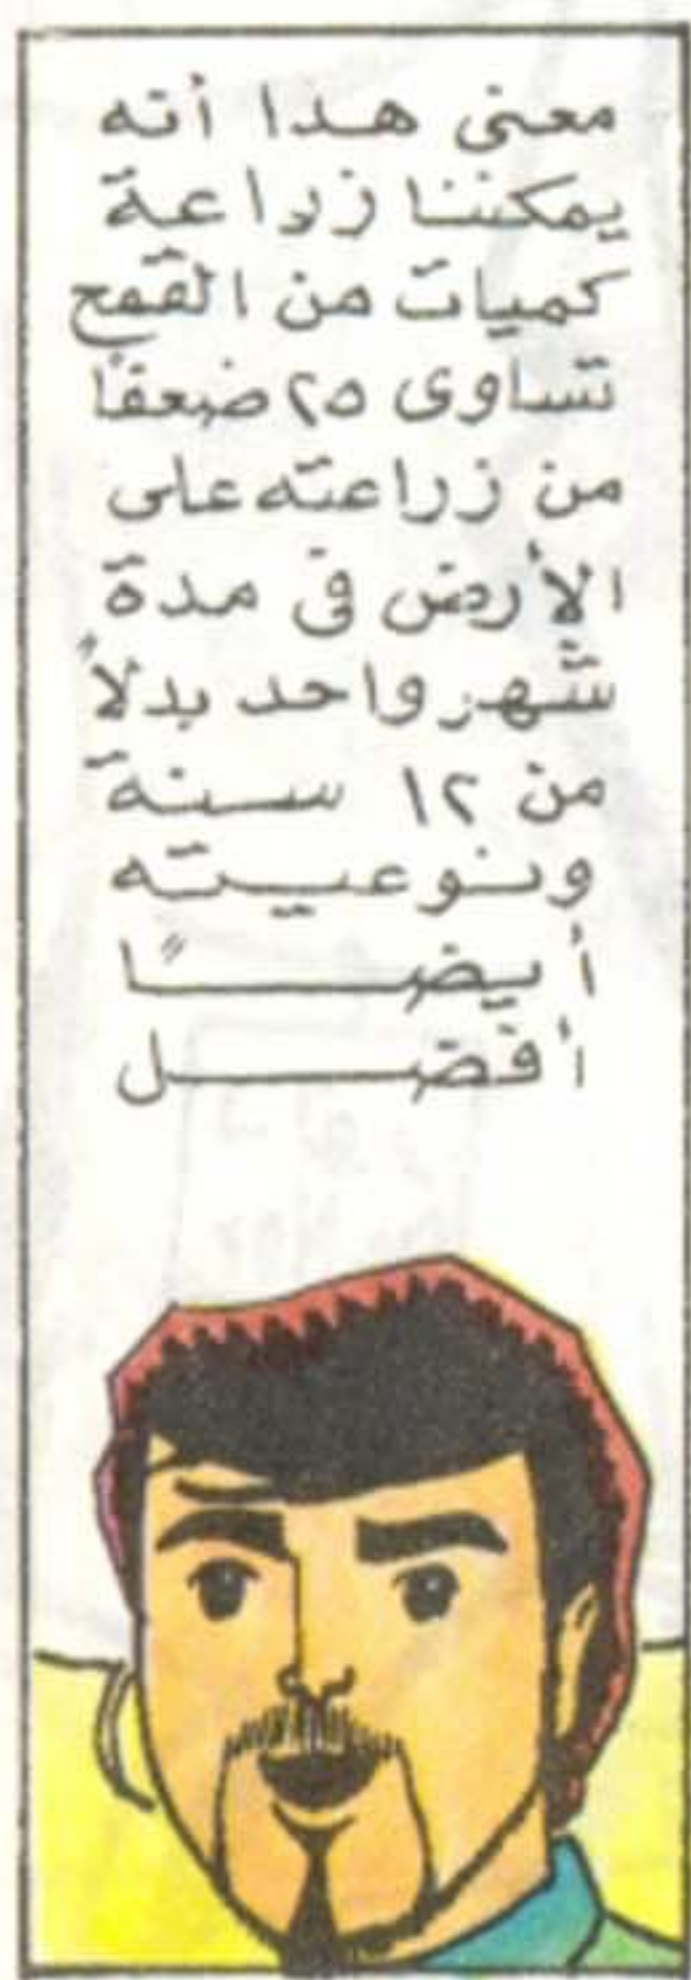 معنى هذا أنه
يمكننا زراعة
كميات من القمح
تساوى ٢٥ ضعفًا
من زراعته على
الأرض في مدة
شهر واحد بدلاً
من ١٢ سنة
ونوعيته
أيضًا
أفضل